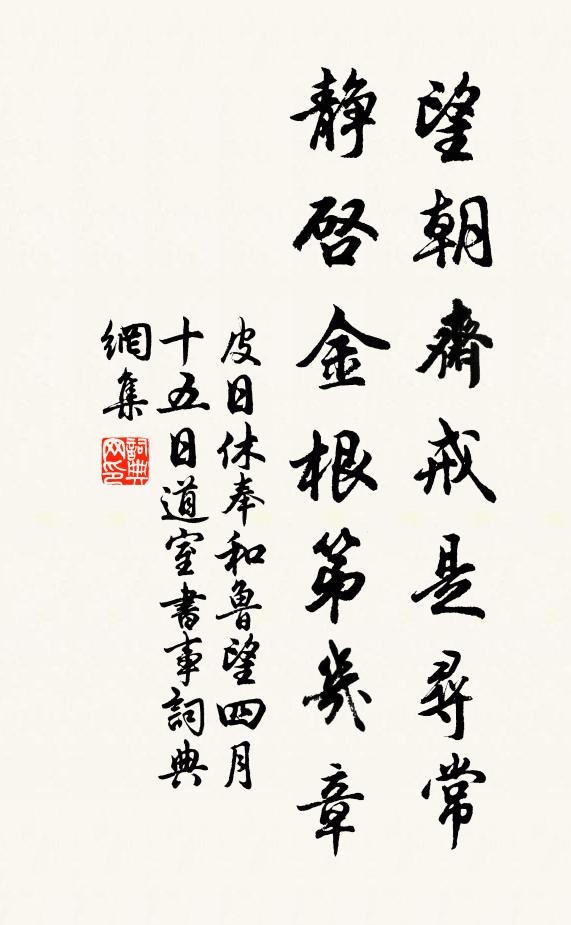 望朝齋戒是尋常
靜啓金根第幾章
皮日休奉和魯望四月
十五日道室書事詞典
網集
詞典
网印